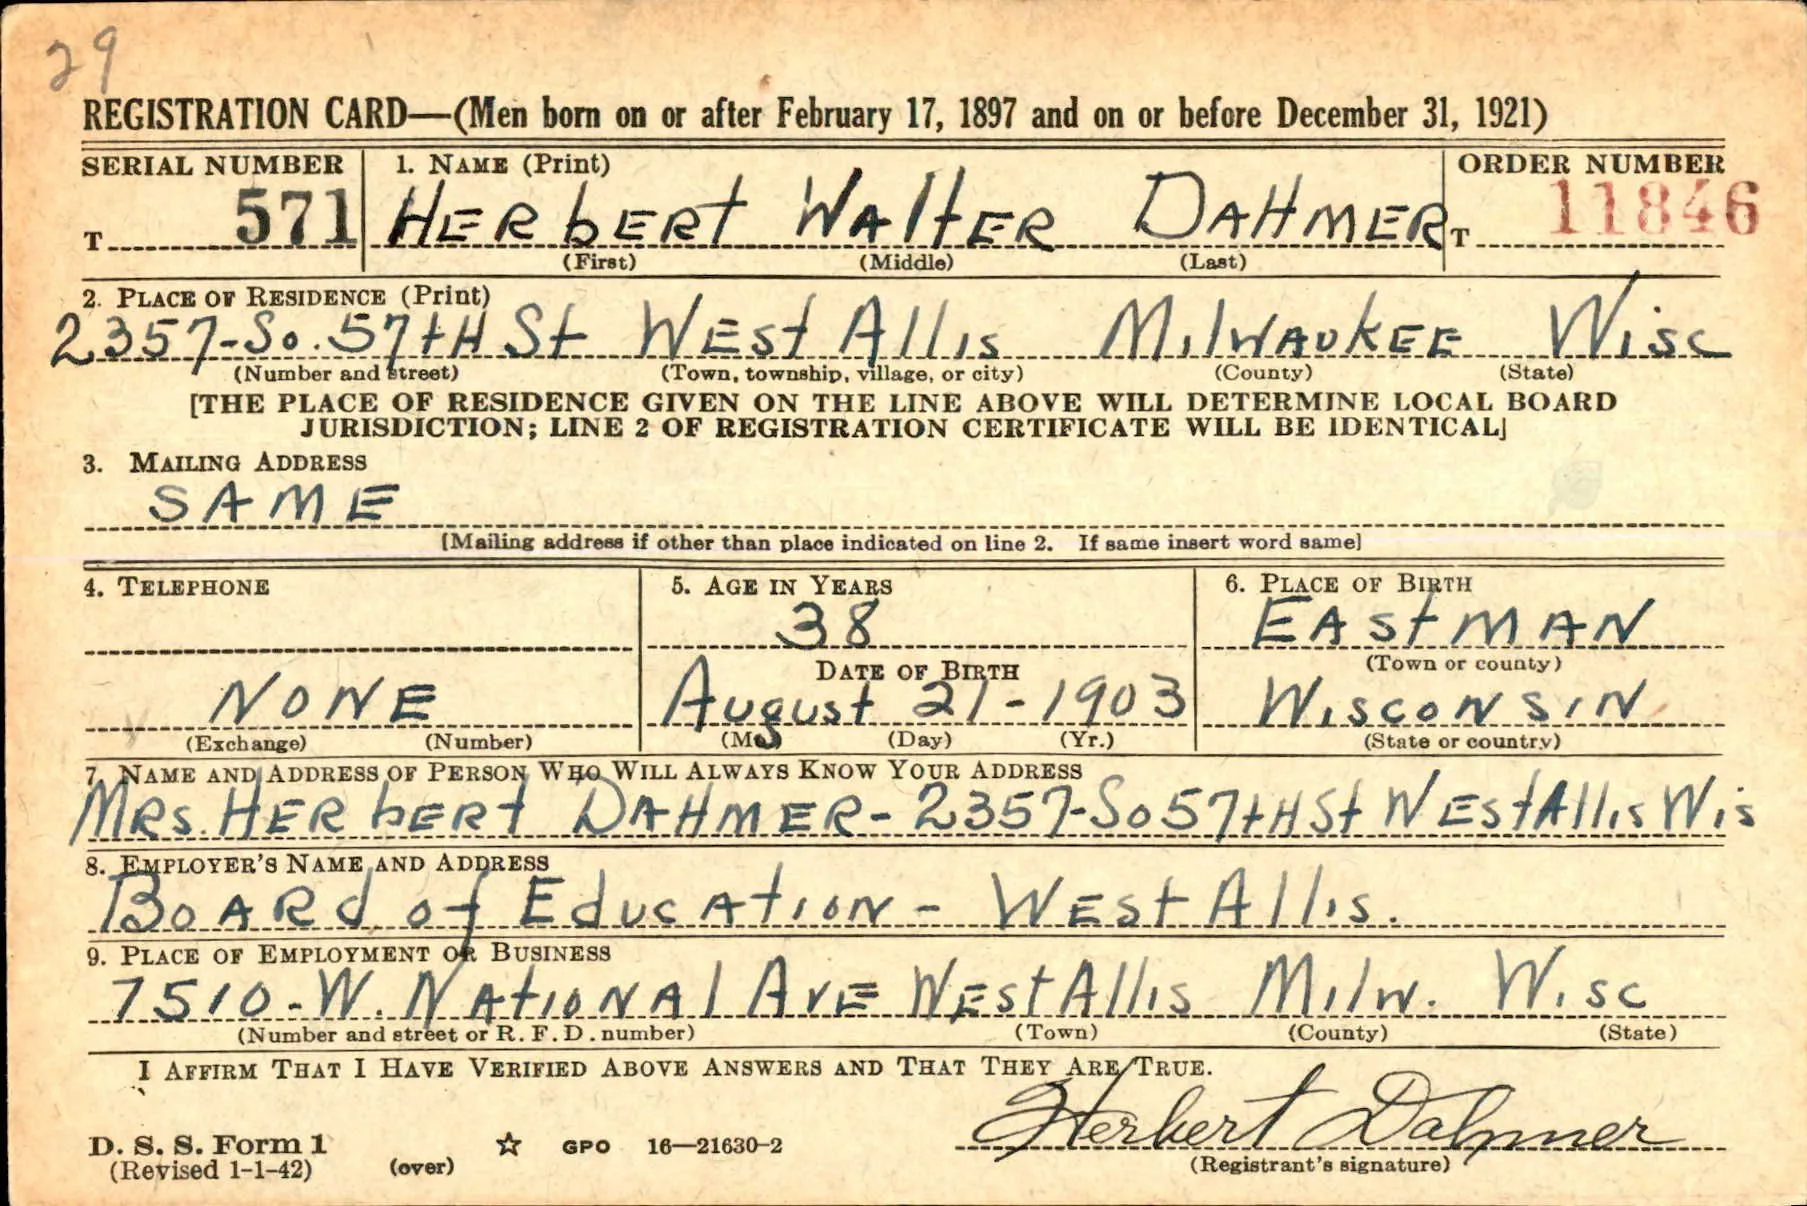 29
REGISTRATION CARD—(Men born on or after February 17, 1897 and on or before December 31, 1921)
SERIAL NUMBER 1. NAME (Print) ORDER NUMBER
T 571 HERbERT WAltER DAHMER T 11846
(First) (Middle) (Last)
2. PLACE OF RESIDENCE (Print)
2357-So. 57tH St WEst Allis MilWAUKEE Wisc
(Number and street) (Town, township, village, or city) (County) (State)
[THE PLACE OF RESIDENCE GIVEN ON THE LINE ABOVE WILL DETERMINE LOCAL BOARD
JURISDICTION; LINE 2 OF REGISTRATION CERTIFICATE WILL BE IDENTICAL]
3. MAILING ADDRESS
SAME
[Mailing address if other than place indicated on line 2. If same insert word same]
4. TELEPHONE 5. AGE IN YEARS 6. PLACE OF BIRTH
38 EAStMAN
DATE OF BIRTH (Town or county)
NONE August 21-1903 WiscoNsiN
(Exchange) (Number) (Mo.) (Day) (Yr.) (State or country)
7. NAME AND ADDRESS OF PERSON WHO WILL ALWAYS KNOW YOUR ADDRESS
MRs. HERbERt DAHMER-2357-So 57tHSt WEstAllis Wis
8. EMPLOYER'S NAME AND ADDRESS
BoARd of EducAtioN - WEst Allis.
9. PLACE OF EMPLOYMENT OR BUSINESS
7510-W. NAtioNAl AvE WEst Allis Milw. Wisc
(Number and street or R. F. D. number) (Town) (County) (State)
I AFFIRM THAT I HAVE VERIFIED ABOVE ANSWERS AND THAT THEY ARE TRUE.
Herbert Dahmer
D. S. S. Form 1 ☆ GPO 16—21630-2
(Revised 1-1-42) (over) (Registrant's signature)